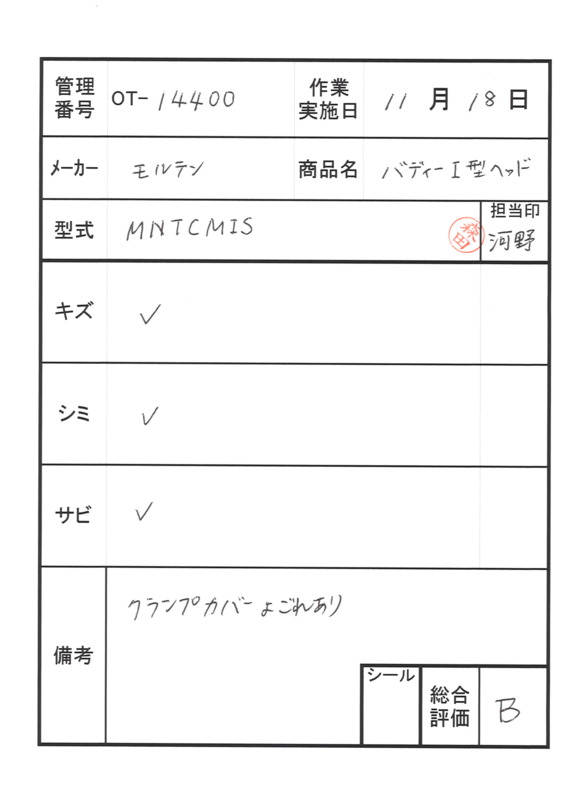 管理番号 OT-14400 作業実施日 11月18日
メーカー モルテン 商品名 バディーI型ヘッド
型式 MNTCMIS 森田 担当印 河野
キズ ✓
シミ ✓
サビ ✓
備考 クランプカバーよごれあり
シール 総合評価 B